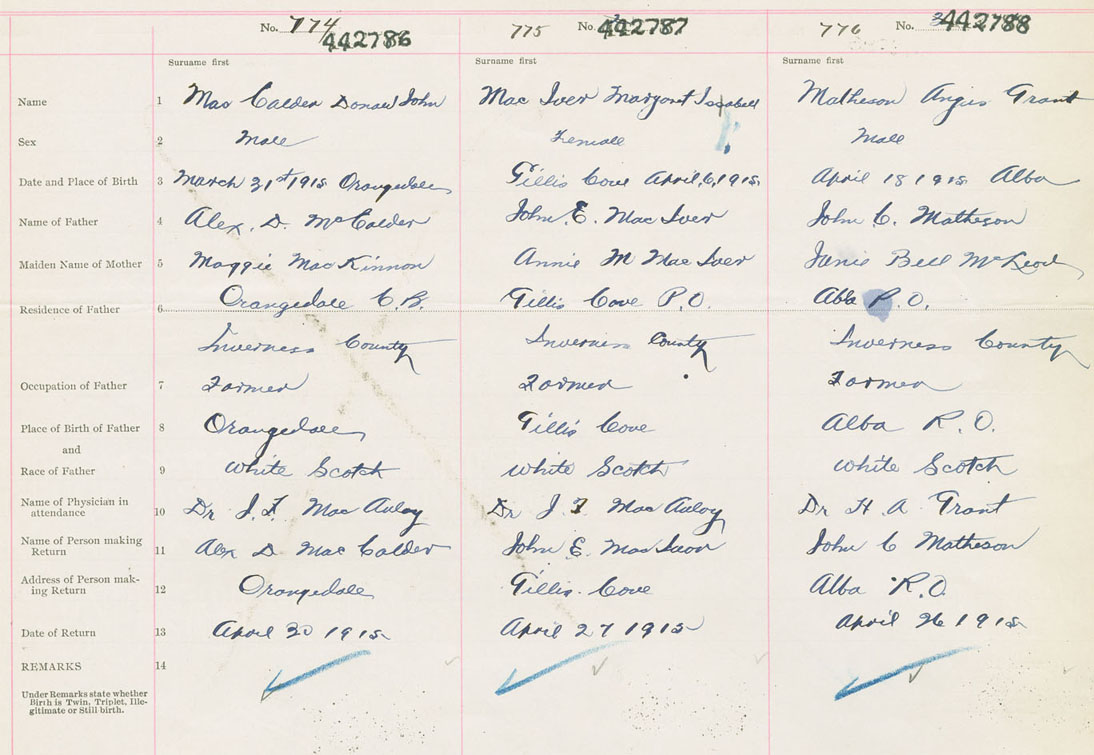 No. 774 442786 775 No 442787 776 No. 442788
Surname first Surname first Surname first
Name 1 Mac Calder Donald John Mac Iver Margaret Issabell Matheson Angus Grant
Sex 2 Male Female Male
Date and Place of Birth 3 March 21st 1915 Orangedale Gillis Cove April, 6, 1915. April 18 1915 Alba
Name of Father 4 Alex. D. McCalder John E. Mac Iver John C. Matheson
Maiden Name of Mother 5 Maggie MacKinnon Annie M MacIver Janie Bell McLeod
Residence of Father 6 Orangedale C.B. Gillis Cove P.O. Alba P.O.
Inverness County Inverness County Inverness County
Occupation of Father 7 Farmer Farmer Farmer
Place of Birth of Father 8 Orangedale Gillis Cove Alba R.O.
and
Race of Father 9 White Scotch White Scotch White Scotch
Name of Physician in
attendance 10 Dr J. F. MacAuley Dr J F MacAuley Dr H. A Grant
Name of Person making
Return 11 Alex D. MacCalder John E. MacIver John C Matheson
Address of Person mak-
ing Return 12 Orangedale Gillis. Cove Alba R.O.
Date of Return 13 April 30 1915 April 27 1915 April 26 1915
REMARKS 14
Under Remarks state whether
Birth is Twin, Triplet, Ille-
gitimate or Still-birth.